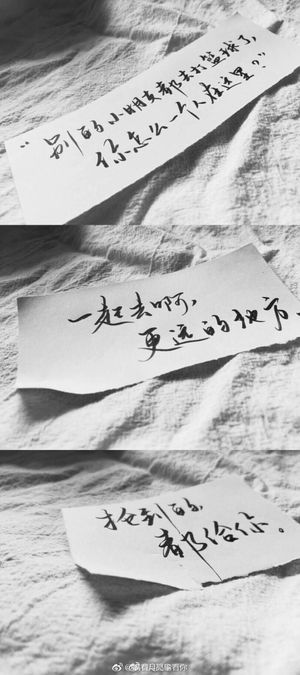 “别的小朋友都去打篮球了,
你怎么一个人在这里?”
一起去啊,
更远的地方.
抢到的,
都给你。